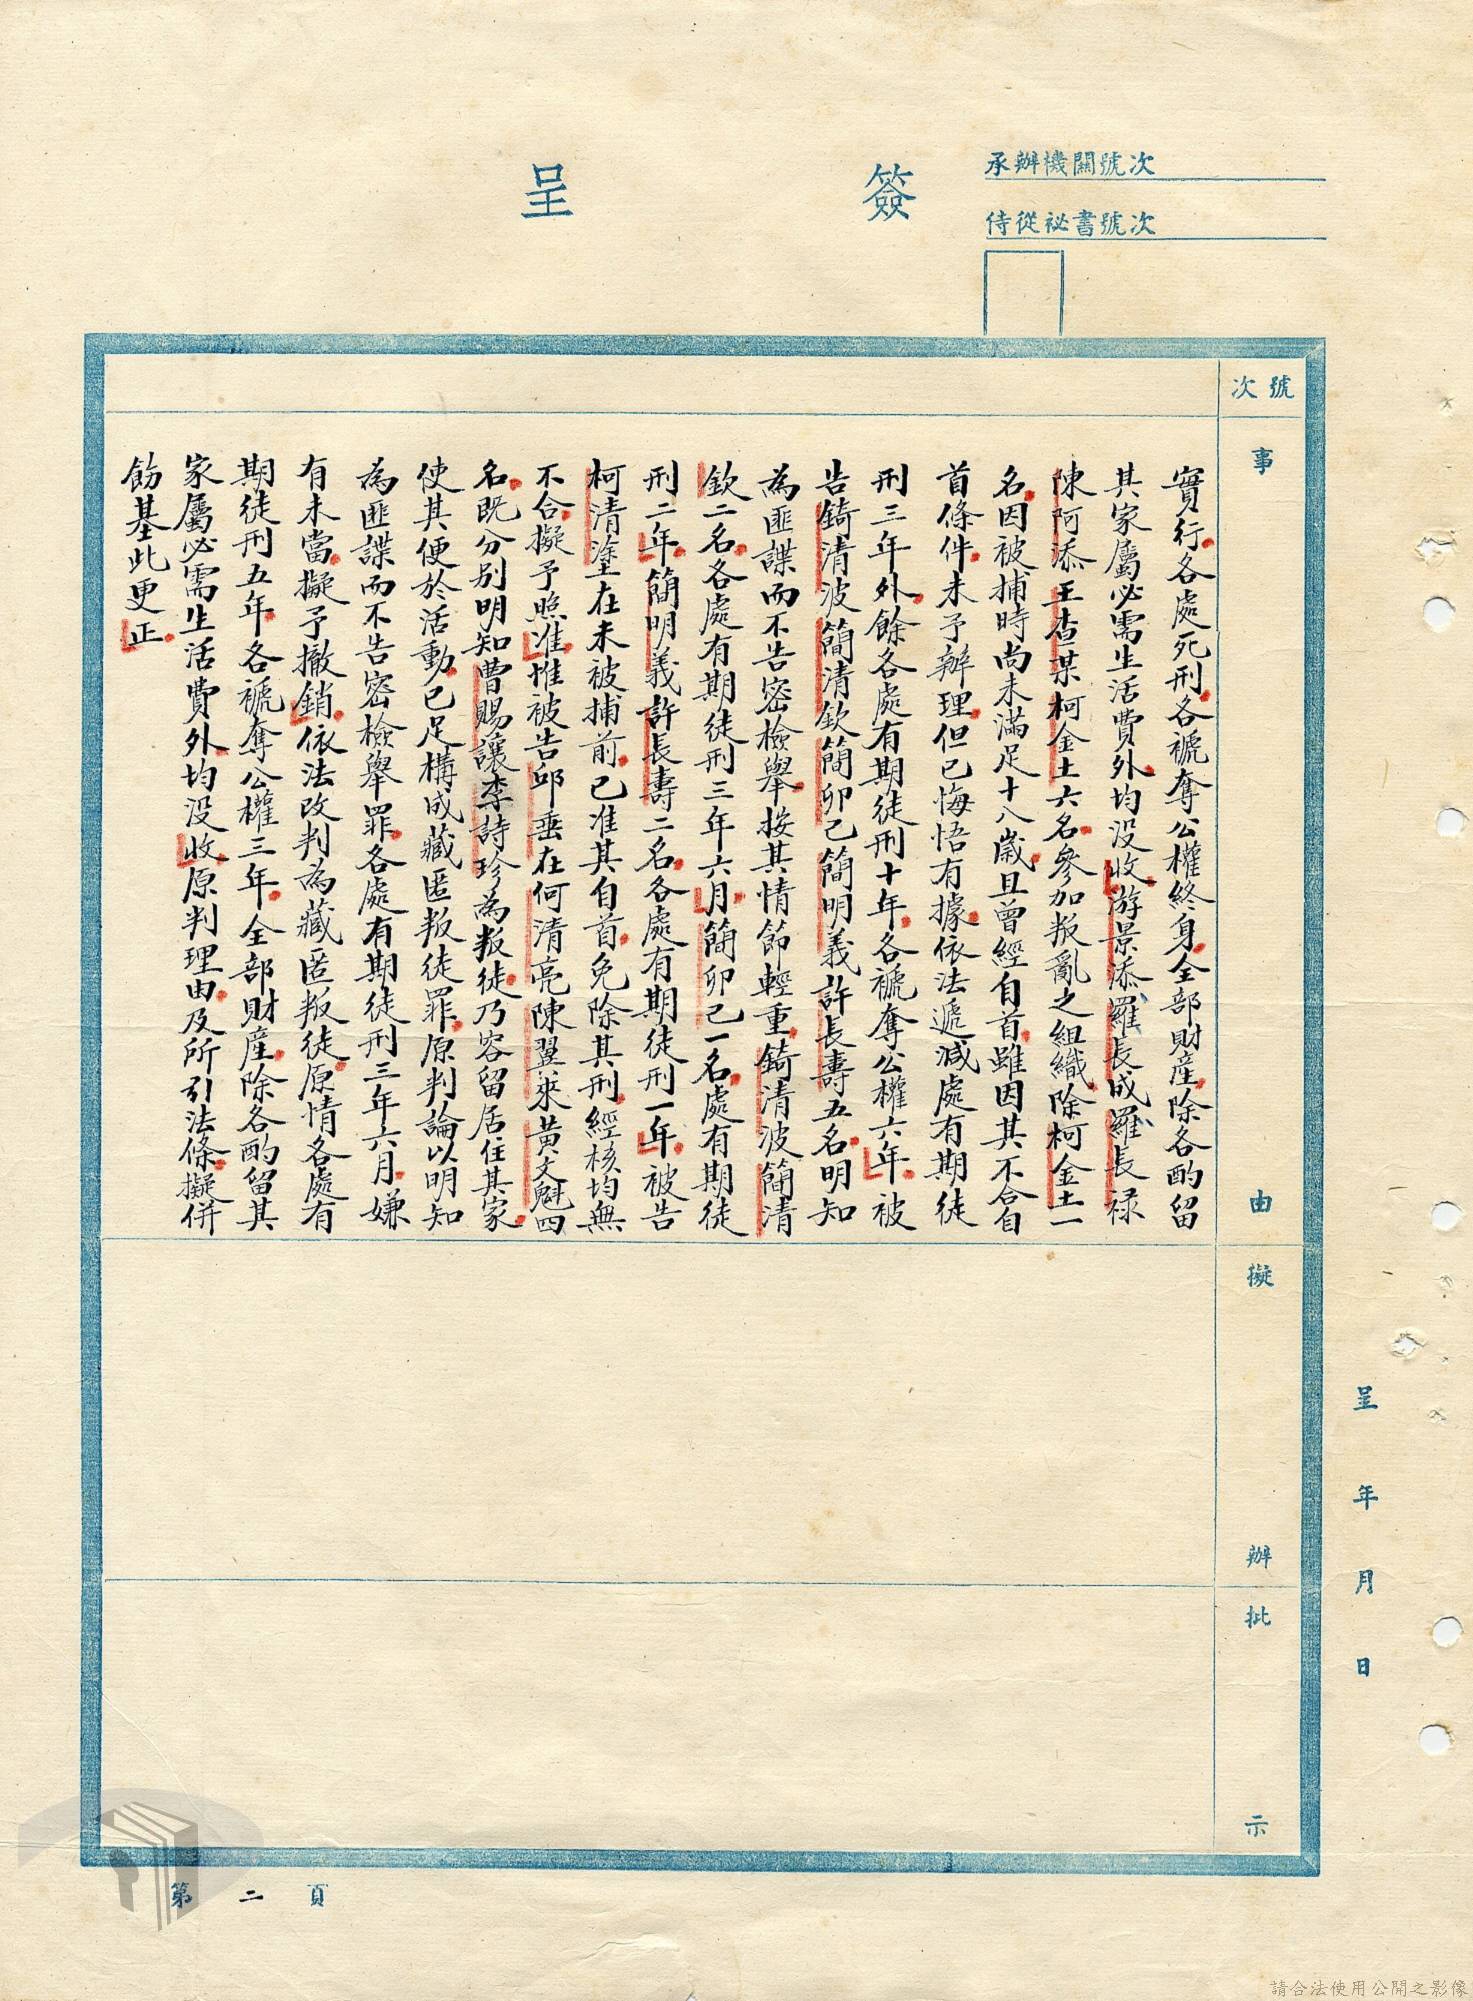 簽呈
承辦機關號次
侍從祕書號次
號次
事由
擬辦
批示
實行各處死刑各褫奪公權終身全部財產除各酌留
其家屬必需生活費外均沒收游景添羅長成羅長祿
陳阿添王杏某柯金土六名參加叛亂之組織除柯金土一
名因被捕時尚未滿足十八歲且曾經自首雖因其不合自
首條件未予辦理但已悔悟有據依法遞減處有期徒
刑三年外餘各處有期徒刑十年各褫奪公權六年被
告錡清波簡清欽簡卯己簡明義許長壽五名明知
為匪諜而不告密檢舉按其情節輕重錡清波簡清
欽二名各處有期徒刑三年六月簡卯己一名處有期徒
刑二年簡明義許長壽二名各處有期徒刑一年被告
柯清塗在未被捕前已准其自首免除其刑經核均無
不合擬予照准惟被告邱垂在何清亮陳翌來黃文魁四
名既分別明知曹賜讓李詩珍為叛徒乃容留居住其家
使其便於活動已足構成藏匿叛徒罪原判論以明知
為匪諜而不告密檢舉罪各處有期徒刑三年六月嫌
有未當擬予撤銷依法改判為藏匿叛徒原情各處有
期徒刑五年各褫奪公權三年全部財產除各酌留其
家屬必需生活費外均沒收原判理由及所引法條擬併
飭基此更正
呈 年 月 日
第二頁
請合法使用公開之影像